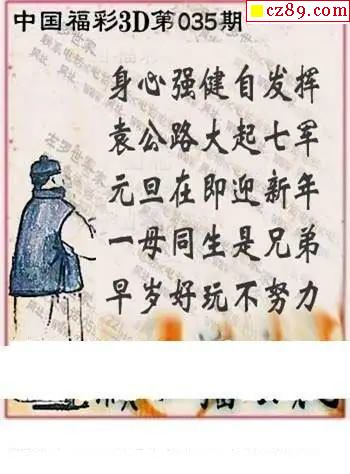 cz89.com
中国福彩3D第035期
身心强健自发挥
袁公路大起七军
元旦在即迎新年
一母同生是兄弟
早岁好玩不努力